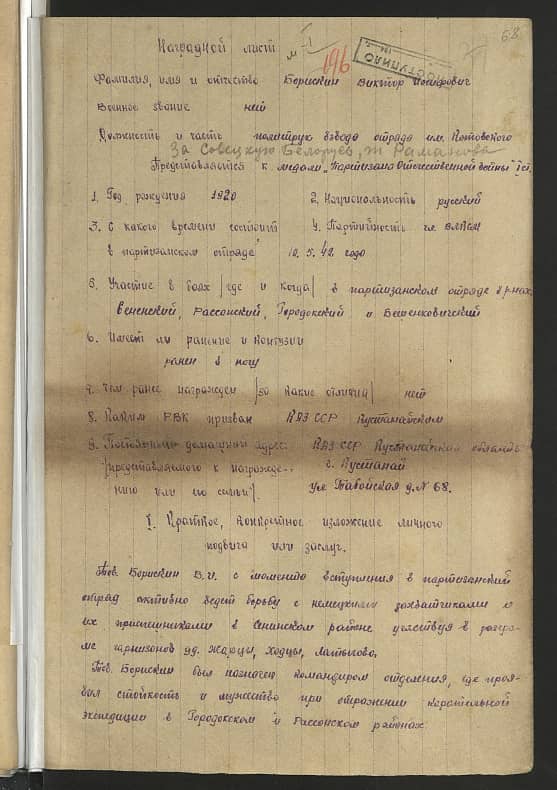 68
Наградной лист
196
ПОСТУПИЛО
Фамилия, имя и отчество Борискин Виктор
Военное звание нет
Должность и часть политрук взвода отряда им. Котовского
За Совецкую Белорусь, т Раманова
Представляется к медали "Партизана Отечественной войны" I ст.
1. Год рождения 1920 2. Национальность русский
3. С какого времени состоит 4. Партийность чл. ВЛКСМ
в партизанском отряде 10.5.42 года
5. Участие в боях /где и когда/ в партизанском отряде в р-нах
Сененский, Рассонский, Городокский и Бешенковичский
6. Имеет ли ранение и контузии
ранен в ногу
7. Чем ранее награжден /за какие отличия/ нет
8. Каким РВК призван КАЗ ССР Кустанайским
9. Постоянный домашний адрес: КАЗ ССР Кустанайская область
/представляемого к награжде- г. Кустанай
нию или его семьи/. ул. Табойская д. № 68.
I. Краткое, конкретное изложение личного
подвига или заслуг.
Тов. Борискин В.И. с момента вступления в партизанский
отряд активно ведет борьбу с немецкими захватчиками и
их приспешниками в Сенинском районе участвуя в разгро-
ме гарнизонов дд. Ходцы, Латыгово.
Тов. Борискин был назначен командиром отделения, где проя-
вил стойкость и мужество при отражении карательной
экспедиции в Городокском и Рассонском районах.